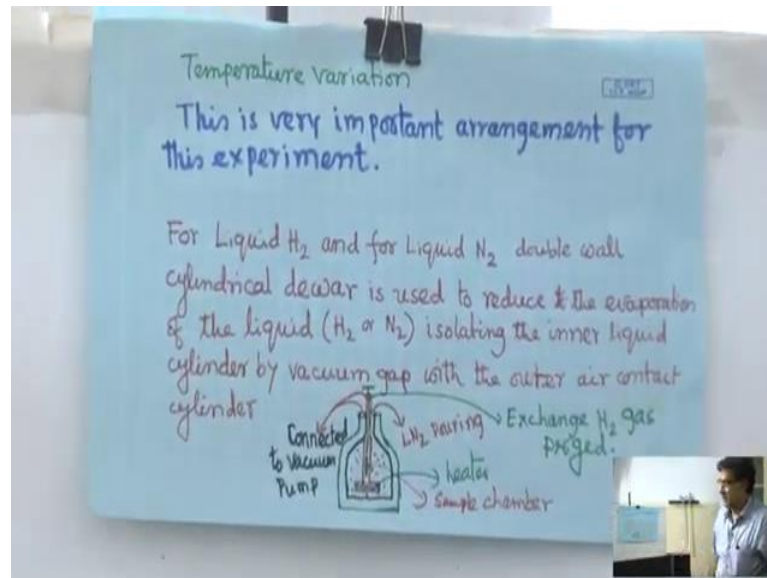 Temperature variation
This is very important arrangement for
this experiment.
For Liquid H2 and for Liquid N2 double wall
cylindrical dewar is used to reduce the evaporation
of the liquid (H2 or N2) isolating the inner liquid
cylinder by vacuum gap with the outer air contact
cylinder
Connected
to vacuum
Pump
LN2 pouring
Exchange H2 gas
heater
sample chamber